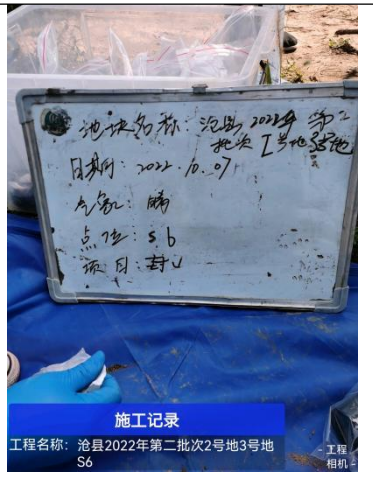 地块名称: 沧县2022年 第2
批次 I号地3号地
日期: 2022.10.07
气象: 晴
点位: S6
项目: 封
施工记录
工程名称: 沧县2022年第二批次2号地3号地
S6
- 工程
相机 -